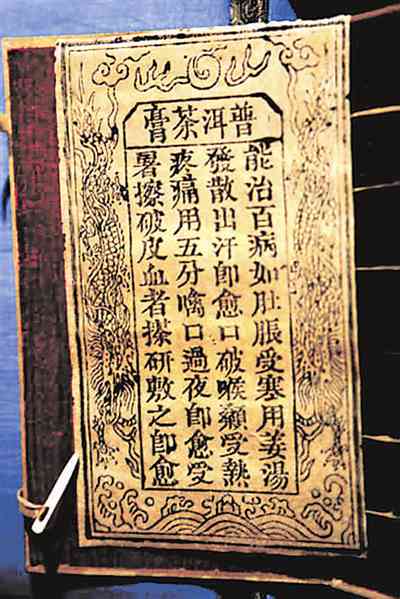 普洱茶膏
能治百病如肚脹受寒用姜湯
發散出汗即愈口破喉顙受熱
疼痛用五分噙口過夜即愈受
暑擦破皮血者搽研敷之即愈